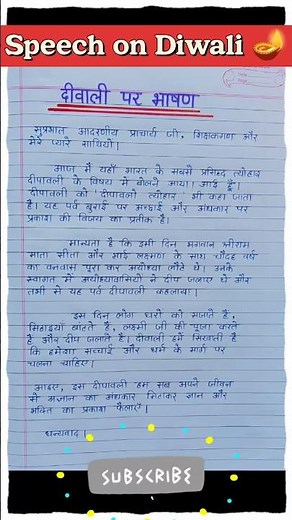 Speech on Diwali
दीवाली पर भाषण
सुप्रभात आदरणीय प्राचार्य जी, शिक्षकगण और
मेरे प्यारे साथियों।
आज मैं यहाँ भारत के सबसे प्रसिद्ध त्योहार
दीपावली के विषय में बोलने आया। आई हूँ।
दीपावली को 'दीपावली त्योहार' भी कहा जाता
है। यह पर्व बुराई पर अच्छाई और अंधकार पर
प्रकाश की विजय का प्रतीक है।
मान्यता है कि इसी दिन भगवान श्रीराम
माता सीता और भाई लक्ष्मण के साथ चौदह वर्ष
का वनवास पूरा कर अयोध्या लौटे थे। उनके
स्वागत में अयोध्यावासियों ने दीप जलाए थे और
तभी से यह पर्व दीपावली कहलाया।
इस दिन लोग घरों को सजाते हैं,
मिठाइयाँ बांटते हैं, लक्ष्मी जी की पूजा करते
है और दीप जलाते है। दीवाली हमें सिखाती है
कि हमेशा सच्चाई और धर्म के मार्ग पर
चलना चाहिए।
आइए, इस दीपावली हम सब अपने जीवन
से अज्ञान का अंधकार मिटाकर ज्ञान और
भक्ति का प्रकाश फैलाएँ।
धन्यवाद।
SUBSCRIBE